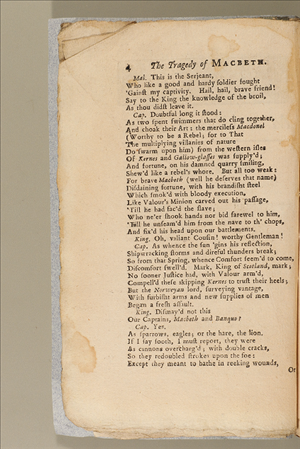 4 The Tragedy of MACBETH.
Mal. This is the Serjeant,
Who like a good and hardy soldier fought
'Gainst my captivity. Hail, hail, brave friend!
Say to the King the knowledge of the broil,
As thou didst leave it.
Cap. Doubtful long it stood:
As two spent swimmers that do cling together,
And choak their Art: the merciless Macdonel
(Worthy to be a Rebel; for to That
The multiplying villanies of nature
Do swarm upon him) from the western isles
Of Kernes and Gallow-glasses was supply'd;
And fortune, on his damned quarry smiling,
Shew'd like a rebel's whore. But all too weak:
For brave Macbeth (well he deserves that name)
Disdaining fortune, with his brandisht steel
Which smok'd with bloody execution,
Like Valour's Minion carved out his passage,
'Till he had fac'd the slave;
Who ne'er shook hands nor bid farewel to him,
'Till he unseam'd him from the nave to th' chops,
And fix'd his head upon our battlements.
King. Oh, valiant Cousin! worthy Gentleman!
Cap. As whence the sun 'gins his reflection,
Shipwrecking storms and direful thunders break;
So from that Spring, whence Comfort seem'd to come,
Discomfort swell'd. Mark, King of Scotland, mark;
No sooner Justice had, with Valour arm'd,
Compell'd these skipping Kernes to trust their heels;
But the Norweyan lord, surveying vantage,
With furbisht arms and new supplies of men
Began a fresh assault.
King. Dismay'd not this
Our Captains, Macbeth and Banquo?
Cap. Yes.
As sparrows, eagles; or the hare, the lion.
If I say sooth, I must report, they were
As cannons overcharg'd; with double cracks,
So they redoubled strokes upon the foe:
Except they meant to bathe in reeking wounds,
Or